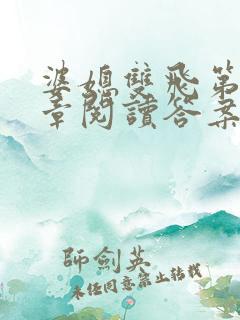 婆媳雙飛第
章閱讀答案
師劍英
未经同意禁止转载